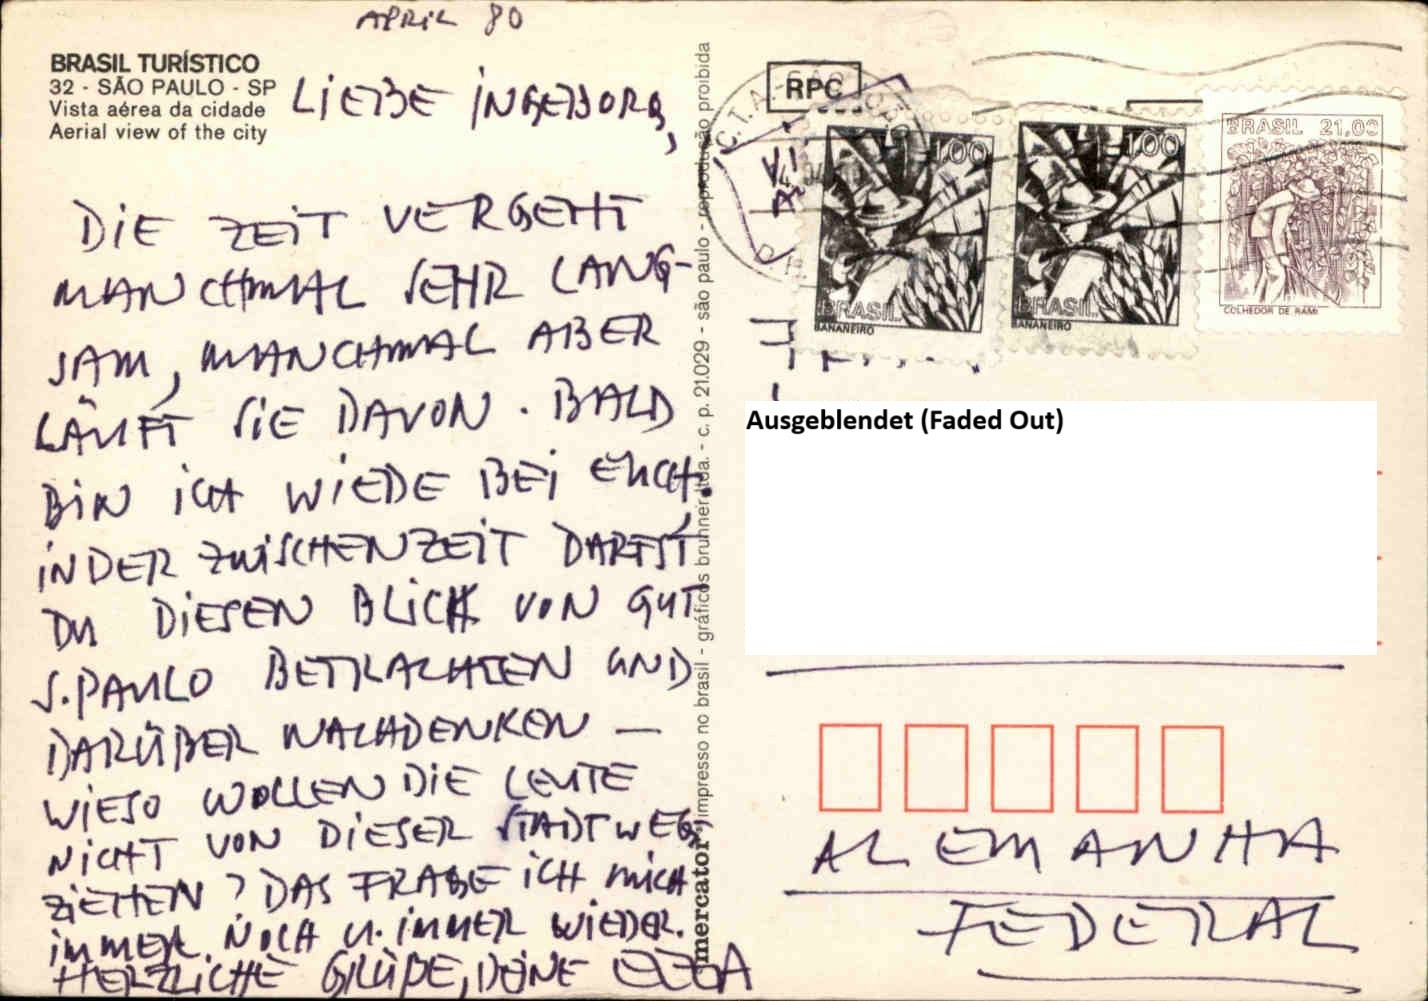 APRIL 80
BRASIL TURÍSTICO
32 - SÃO PAULO - SP
Vista aérea da cidade
Aerial view of the city
LIEBE INGEBORG,
DIE ZEIT VERGEHT
MANCHMAL SEHR LANG-
SAM, MANCHMAL ABER
LÄUFT SIE DAVON. BALD
BIN ICH WIEDE BEI EUCH.
IN DER ZWISCHENZEIT DARFST
DU DIESEN BLICK VON GUT
S. PAULO BETRACHTEN UND
DARÜBER NACHDENKEN —
WIESO WOLLEN DIE LEUTE
NICHT VON DIESER STADT WEG
ZIEHEN? DAS FRAGE ICH MICH
IMMER NOCH U. IMMER WIEDER.
HERZLICHE GRÜße, DEINE
mercator impresso no brasil - gráficos brunner ltda. - c. p. 21.029 - são paulo - reprodução proibida
RPC
1,00
BRASIL
BANANEIRO
1,00
BRASIL
BANANEIRO
BRASIL 21,00
COLHEDOR DE RAMI
Ausgeblendet (Faded Out)
ALEMANHA
FEDERAL